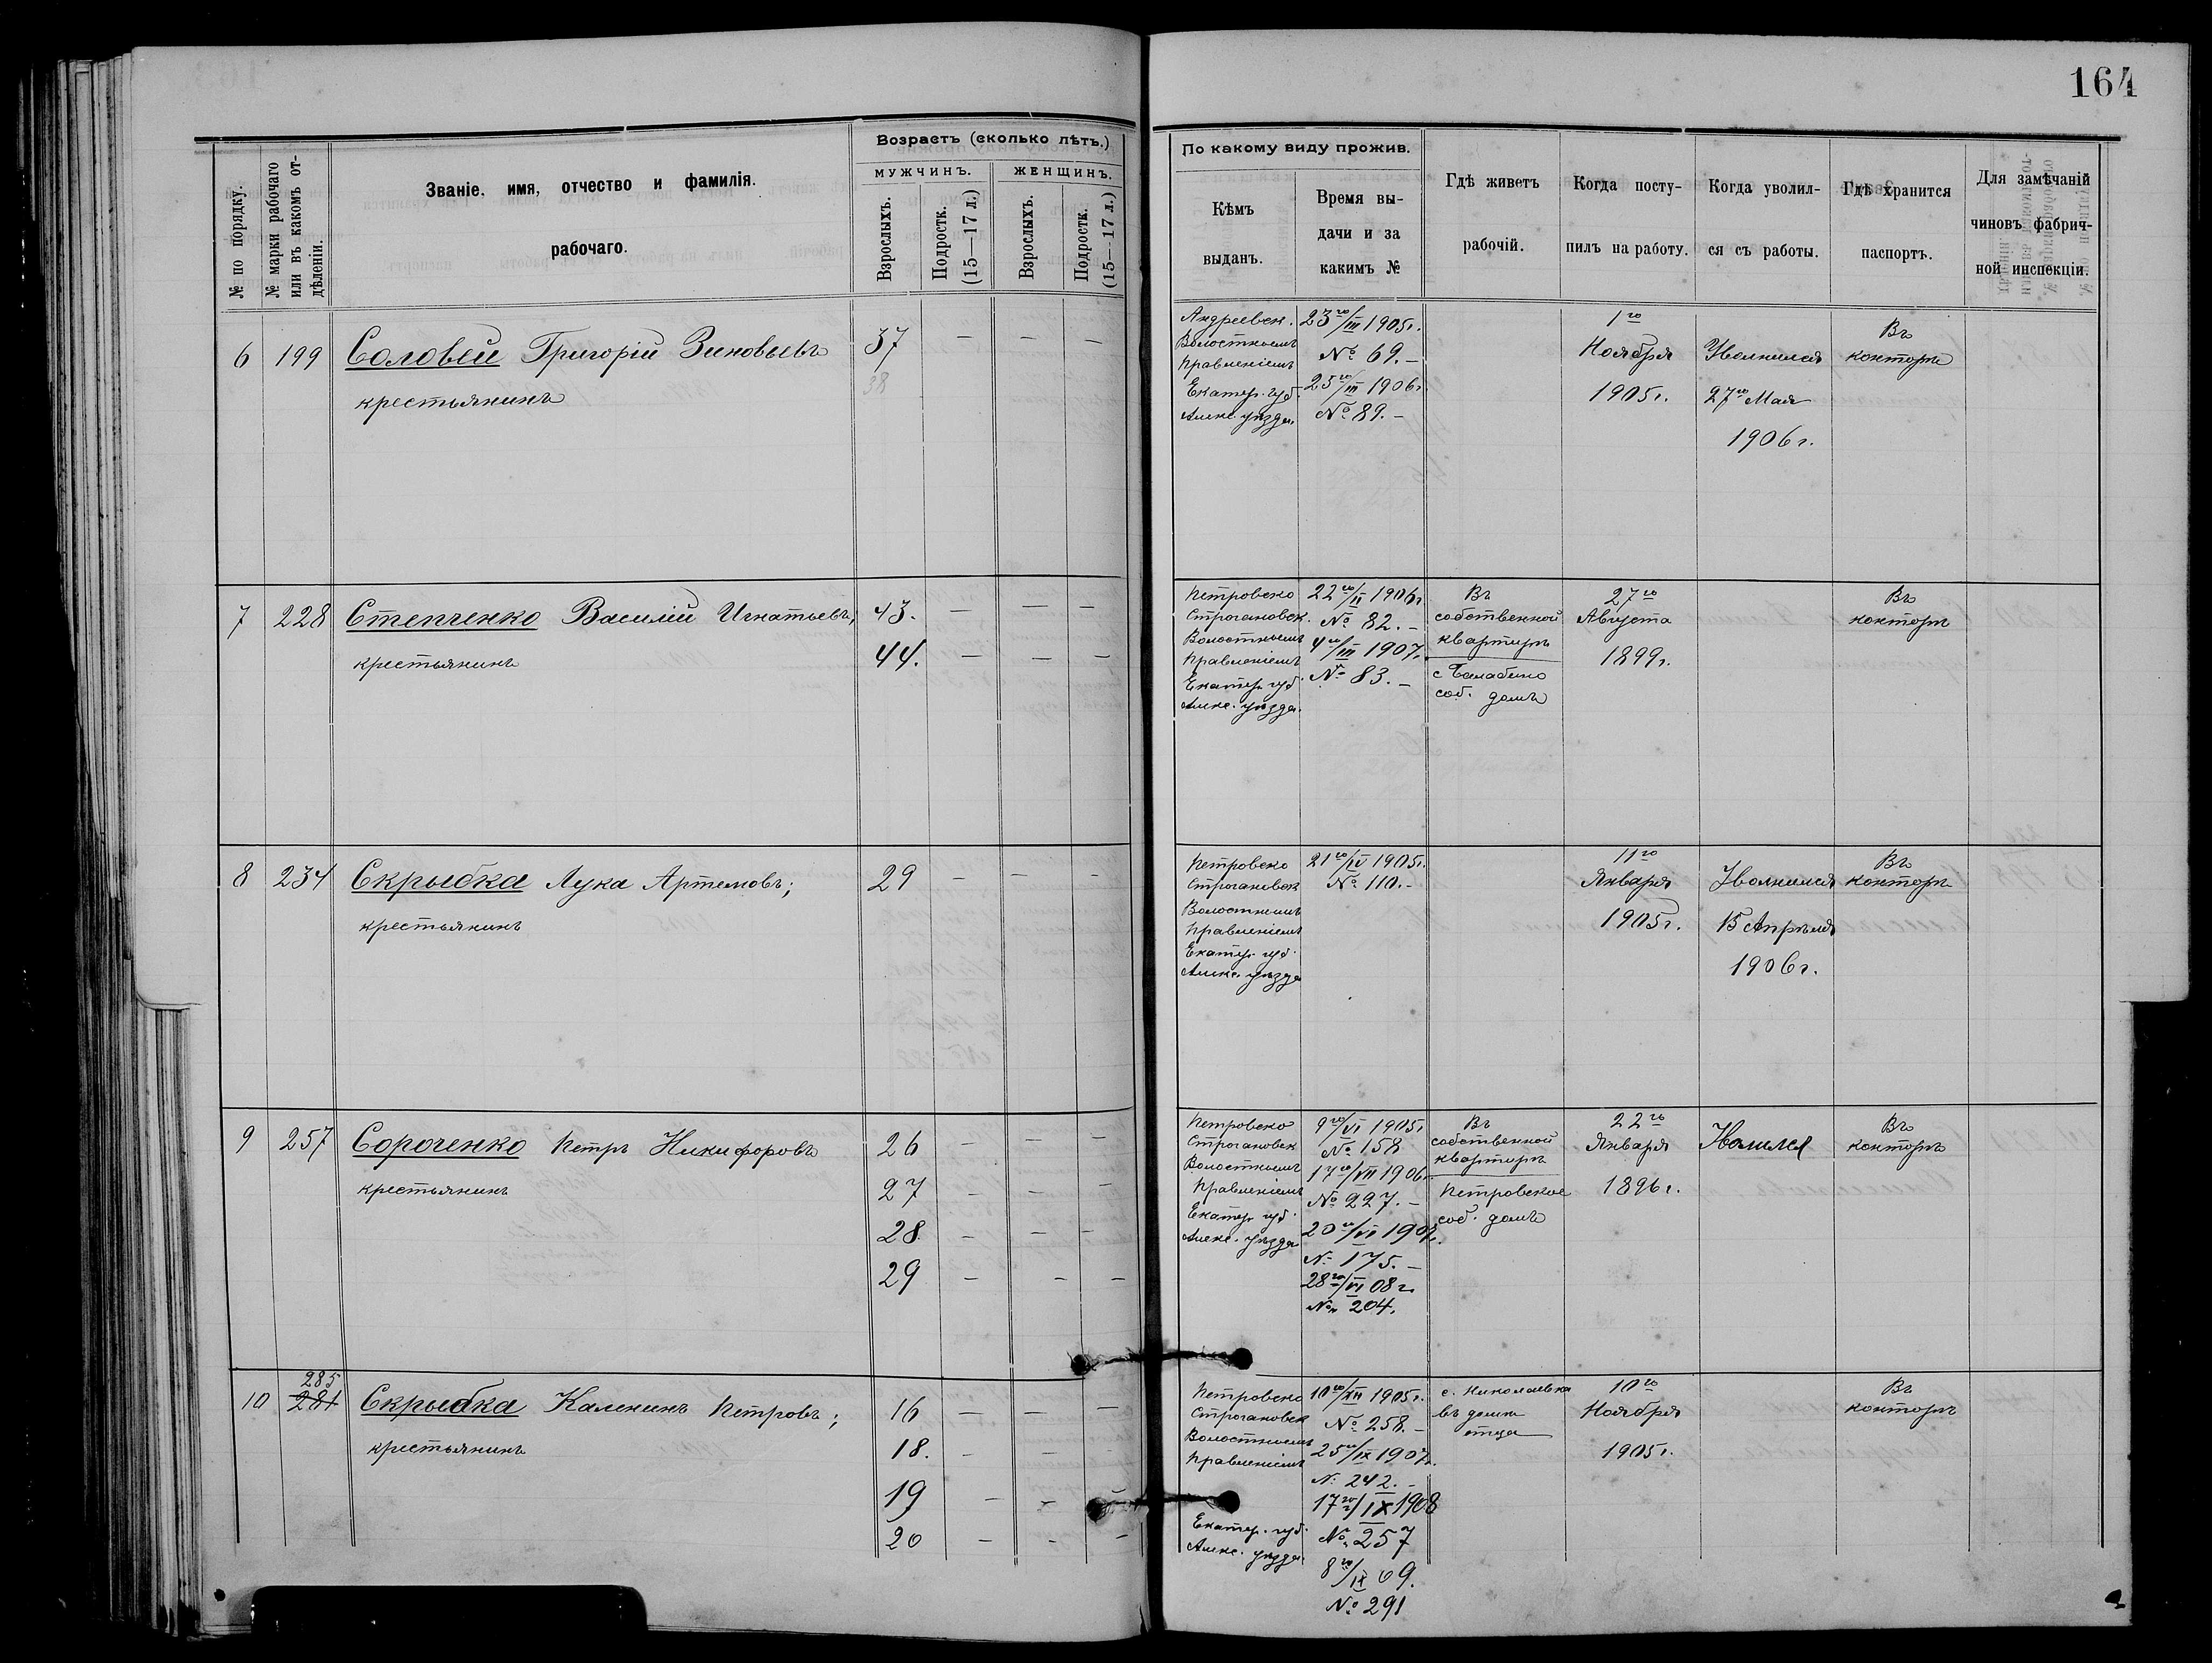 164
№ по порядку.
№ марки рабочаго или въ какомъ отдѣленіи.
Званіе, имя, отчество и фамилія.
рабочаго.
Возрастъ (сколько лѣтъ.)
МУЖЧИНЪ.
ЖЕНЩИНЪ.
Взрослыхъ.
Подростк. (15—17 л.)
Взрослыхъ.
Подростк. (15—17 л.)
По какому виду прожив.
Кѣмъ
выданъ.
Время вы-
дачи и за
какимъ №
Гдѣ живетъ
рабочій.
Когда посту-
пилъ на работу.
Когда уволил-
ся съ работы.
Гдѣ хранится
паспортъ.
Для замѣчаній
чиновъ фабрич-
ной инспекціи.
6 199 Соловей Григорій Зиновьевъ
крестьянинъ
37 — — —
38
Андреевск.
Волостнымъ
Правленіемъ
Екатер. губ.
Алекс. уѣзда.
23го/III 1905г.
№ 69.—
25го/III 1906г.
№ 89.—
1го
Ноября
1905г.
Уволился
27го Мая
1906г.
Въ
конторѣ
7 228 Степченко Василій Игнатьевъ;
крестьянинъ
43. — — —
44. — — —
Петровско
Строгановск.
Волостнымъ
Правленіемъ
Екатер. губ.
Алекс. уѣзда.
22го/II 1906г
№ 82.—
4го/III 1907г.
№ 83.—
Въ
собственной
квартирѣ
с Балабино
соб. домъ
27го
Августа
1899г.
Въ
конторѣ
8 234 Скрыбка Лука Артемовъ;
крестьянинъ
29 — — —
Петровско
Строгановск
Волостнымъ
Правленіемъ
Екатер. губ.
Алекс. уѣзда
21го/IV 1905г.
№ 110.—
11го
Января
1905г.
Уволился
15 Апрѣля
1906г.
Въ
конторѣ
9 257 Сороченко Петръ Никифоровъ
крестьянинъ
26 — — —
27 — — —
28. — — —
29 — — —
Петровско
Строгановск
Волостнымъ
Правленіемъ
Екатер. губ.
Алекс. уѣзда
9го/VI 1905г
№ 158
17го/VII 1906г.
№ 227.—
20го/VI 1907г.
№ 175.—
28го/VI 08г.
№ 204.
Въ
собственной
квартирѣ
Петровское
соб. домъ
22го
Января
1896г.
Уволился
Въ
конторѣ
285
10 281 Скрыбка Калинынъ Петровъ;
крестьянинъ
16 — — —
18. — — —
19 — — —
20 — — —
Петровско
Строгановск
Волостнымъ
Правленіемъ
Екатер. губ.
Алекс. уѣзда
10го/XII 1905г.
№ 258.—
25го/IX 1907г.
№ 242.—
17го/IX 1908
№ 257
8го/IX 09.
№ 291
с. Николаевка
въ домѣ
отца
10го
Ноября
1905г.
Въ
конторѣ